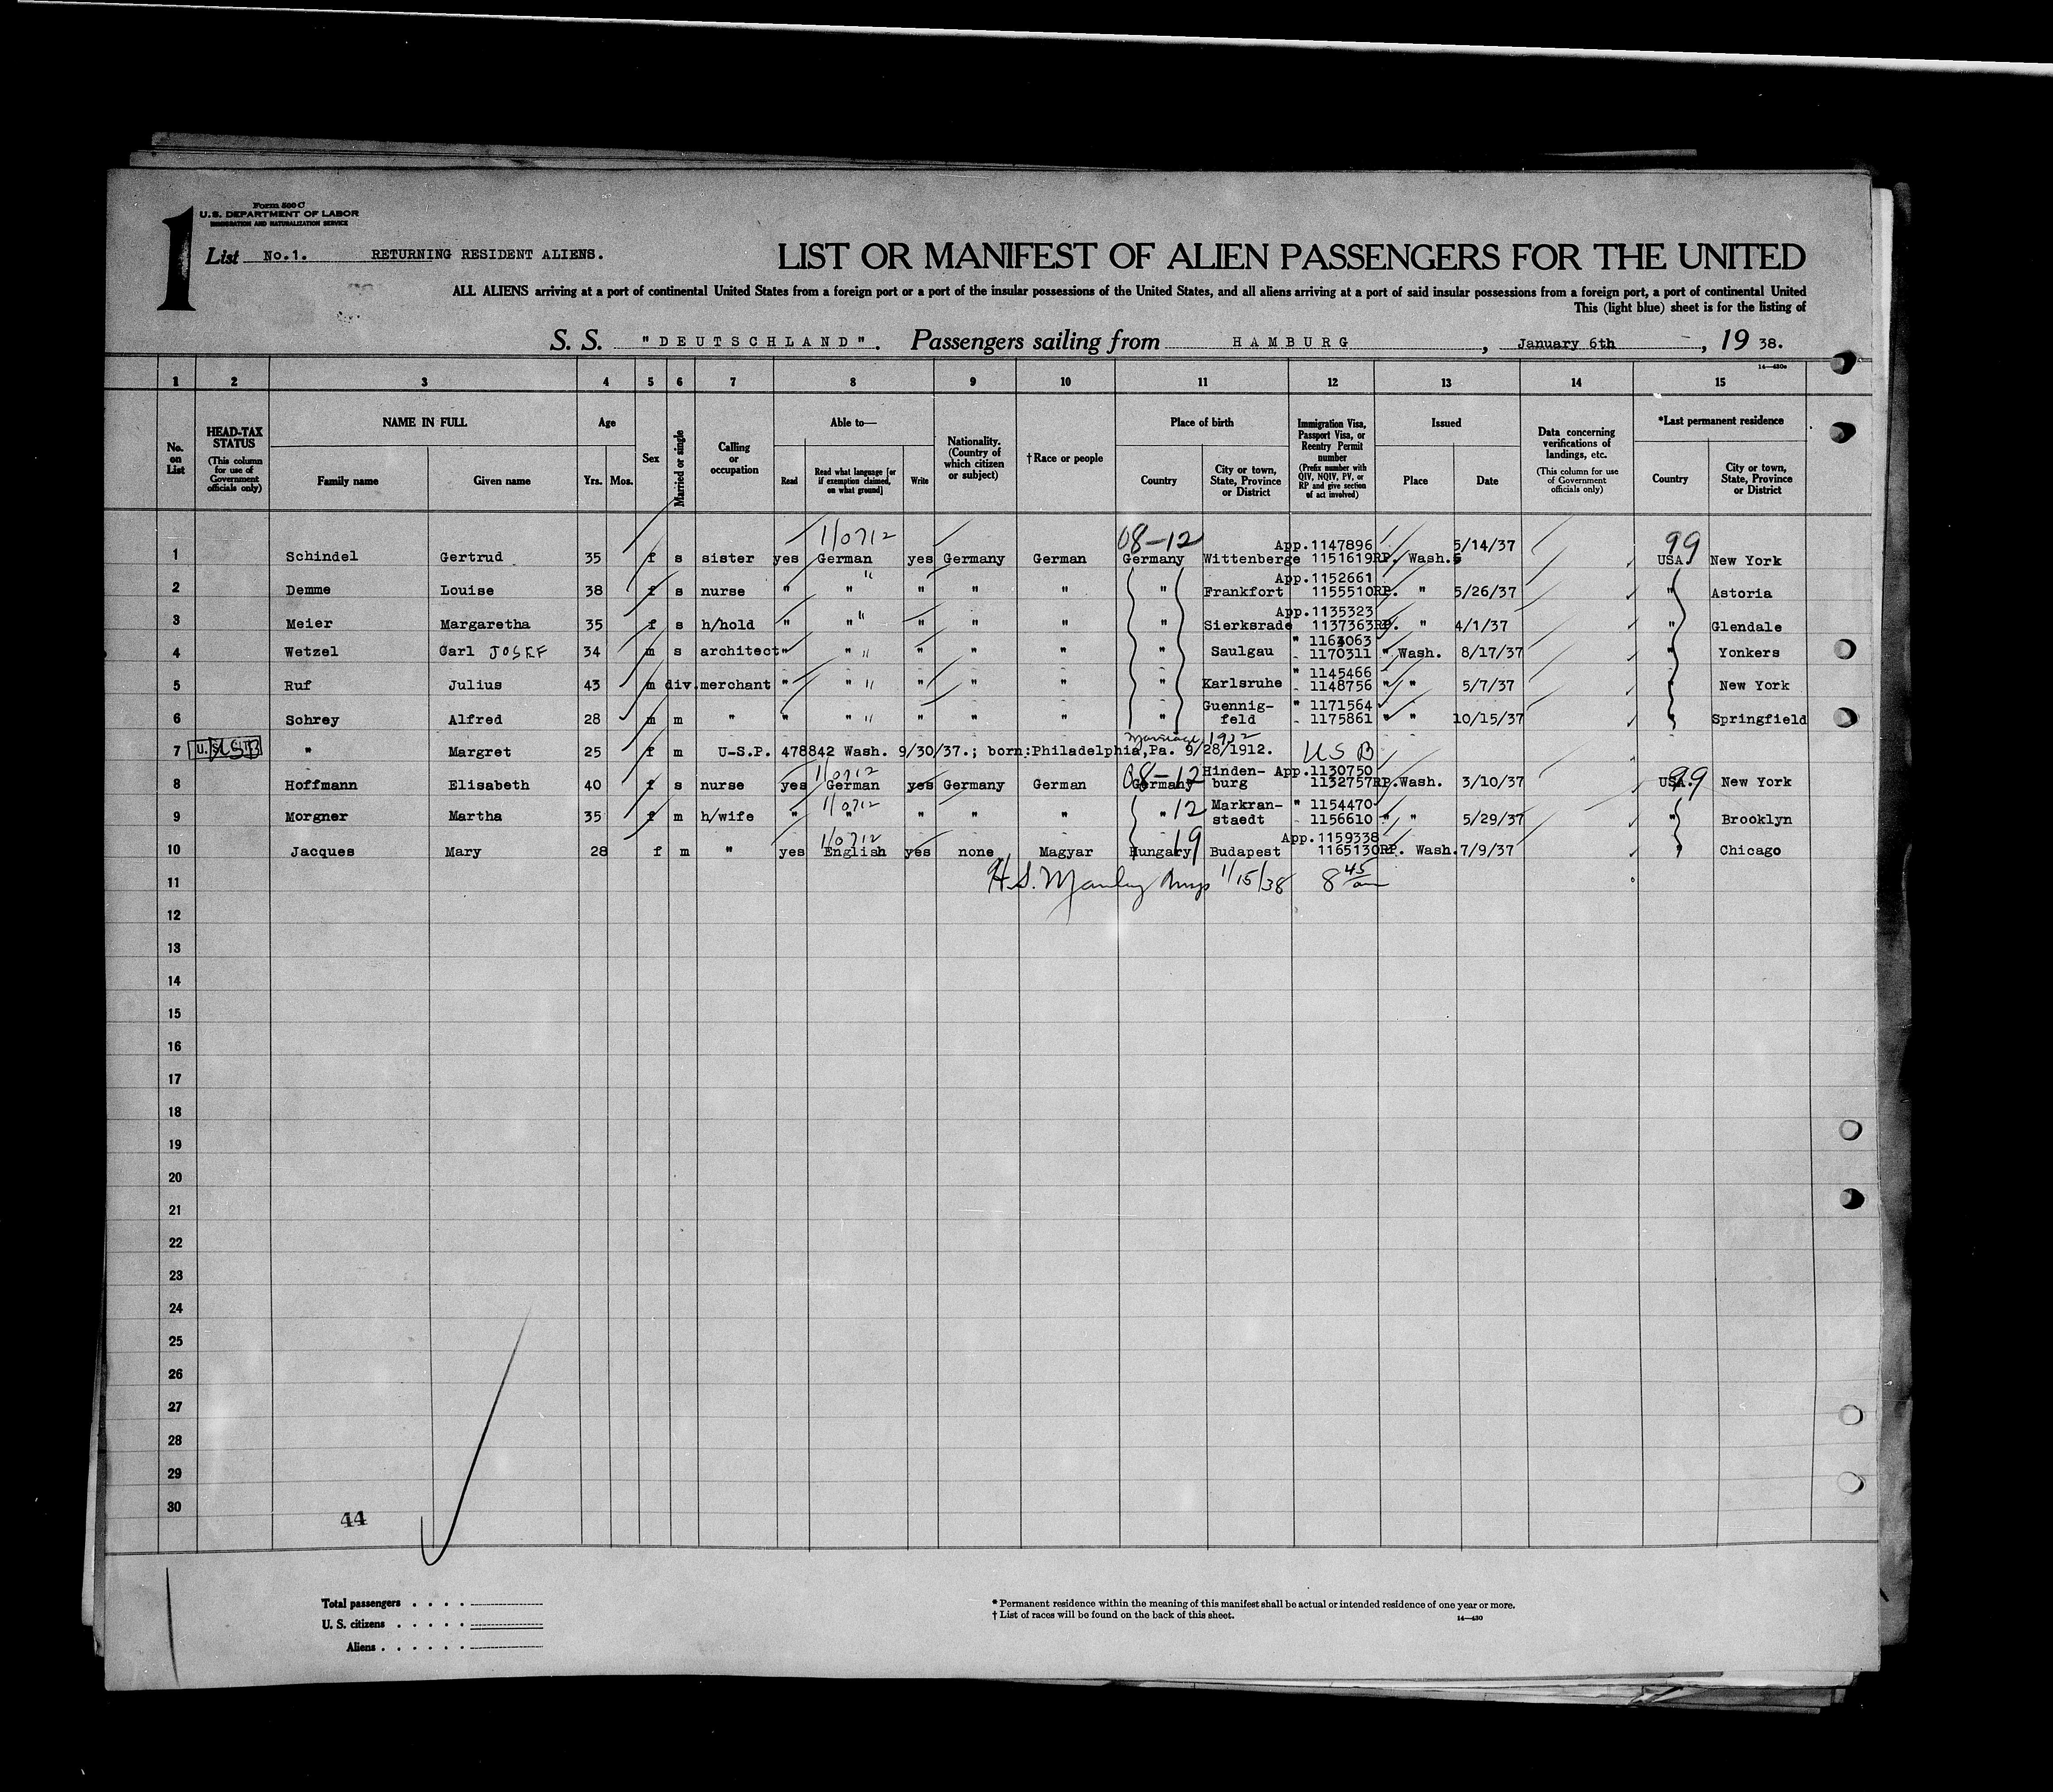 1
Form 500 C
U.S. DEPARTMENT OF LABOR
IMMIGRATION AND NATURALIZATION SERVICE
List No.1. RETURNING RESIDENT ALIENS.
LIST OR MANIFEST OF ALIEN PASSENGERS FOR THE UNITED
ALL ALIENS arriving at a port of continental United States from a foreign port or a port of the insular possessions of the United States, and all aliens arriving at a port of said insular possessions from a foreign port, a port of continental United
This (light blue) sheet is for the listing of
S. S. "DEUTSCHLAND". Passengers sailing from HAMBURG, January 6th, 19 38.
14—430a
1 2 3 4 5 6 7 8 9 10 11 12 13 14 15
No. on List
HEAD-TAX STATUS (This column for use of Government officials only)
NAME IN FULL
Family name Given name
Age
Yrs. Mos.
Sex
Married or single
Calling or occupation
Able to—
Read Read what language [or if exemption claimed, on what ground] Write
Nationality. (Country of which citizen or subject)
†Race or people
Place of birth
Country City or town, State, Province or District
Immigration Visa, Passport Visa, or Reentry Permit number (Prefix number with QIV, NQIV, PV, or RP and give section of act involved)
Issued
Place Date
Data concerning verifications of landings, etc. (This column for use of Government officials only)
*Last permanent residence
Country City or town, State, Province or District
1/0712 08-12 App.1147896 5/14/37 99
1 Schindel Gertrud 35 f s sister yes German yes Germany German Germany Wittenberge 1151619RP. Wash. USA. New York
App.1152661
2 Demme Louise 38 f s nurse " " " " " " Frankfort 1155510RP. " 5/26/37 " Astoria
App.1135323
3 Meier Margaretha 35 f s h/hold " " " " " " Sierksrade 1137363RP. " 4/1/37 " Glendale
" 1163063
4 Wetzel Carl JOSEF 34 m s architect " " " " " " Saulgau 1170311 " Wash. 8/17/37 " Yonkers
" 1145466
5 Ruf Julius 43 m div. merchant " " " " " " Karlsruhe 1148756 " " 5/7/37 " New York
Guennig- " 1171564
6 Schrey Alfred 28 m m " " " " " " " feld 1175861 " " 10/15/37 " Springfield
Marriage 1932
7 U.S. CIT. USB " Margret 25 f m U-S.P. 478842 Wash. 9/30/37.; born:Philadelphia,Pa. 9/28/1912. USB
1/0712 08-12 Hinden- App.1130750
8 Hoffmann Elisabeth 40 f s nurse yes German yes Germany German Germany burg 1132757RP.Wash. 3/10/37 USA. 99 New York
1/0712 12 Markran- " 1154470
9 Morgner Martha 35 f m h/wife " " " " " " staedt 1156610 " " 5/29/37 " Brooklyn
1/0712 19 App.1159338
10 Jacques Mary 28 f m " yes English yes none Magyar Hungary Budapest 1165130RP. Wash.7/9/37 " Chicago
11 H.S. Manley Insp 1/15/38 8 45/am
12
13
14
15
16
17
18
19
20
21
22
23
24
25
26
27
28
29
30
44
Total passengers . . . .
U. S. citizens . . . . .
Aliens . . . . . .
* Permanent residence within the meaning of this manifest shall be actual or intended residence of one year or more.
† List of races will be found on the back of this sheet.
14—430